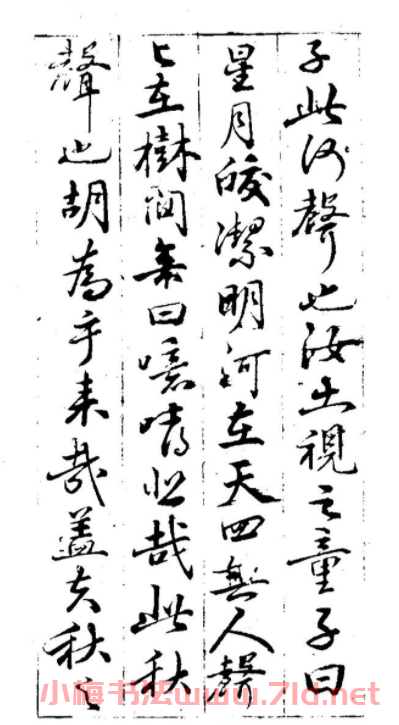 子此何聲也汝出視之童子曰
星月皎潔明河在天四無人聲
〻在樹間余曰噫嘻悲哉此秋
聲也胡為乎來哉蓋夫秋之
小梅书法www.7ld.net